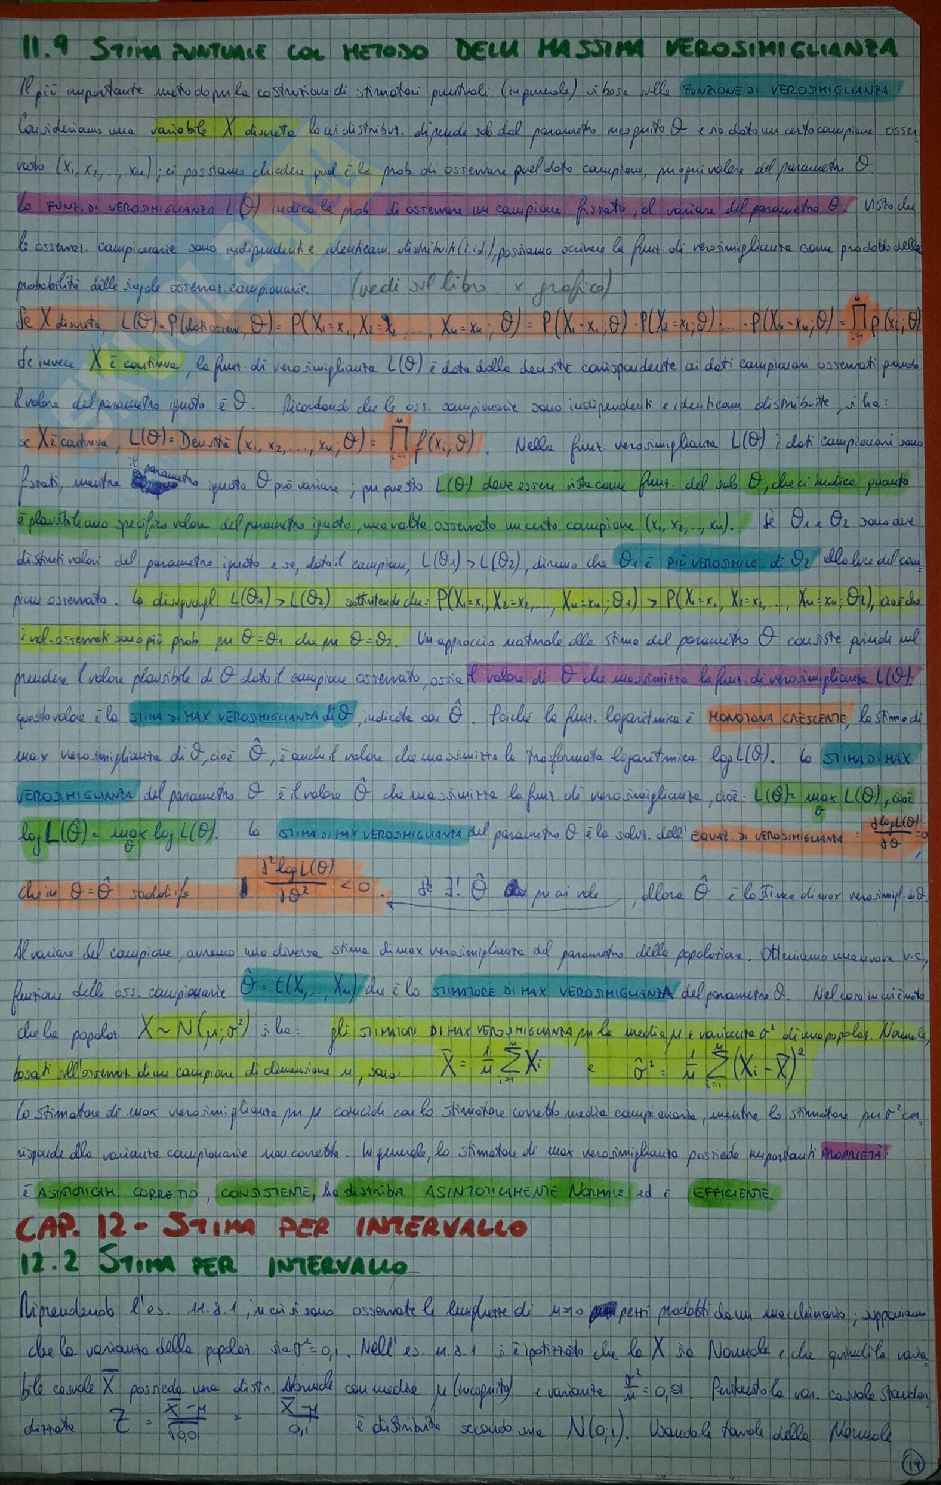 11.9 STIMA PUNTUALE COL METODO DELLA MASSIMA VEROSIMIGLIANZA
Il più importante metodo per la costruzione di stimatori puntuali (in generale) si basa sulla FUNZIONE DI VEROSIMIGLIANZA
Consideriamo una variabile X discreta la cui distribuz. dipende sol dal parametro incognito θ e sia dato un certo campione osser
vato (x₁, x₂, ..., xn); ci possiamo chiedere qual è la prob. di osservare quel dato campione, per ogni valore del parametro θ.
La FUNZ. DI VEROSIMIGLIANZA L(θ) indica la prob. di osservare un campione fissato, al variare del parametro θ. Visto che
le osservaz. campionarie sono indipendenti e identicam. distribuite (i.i.d.), possiamo scrivere la funz. di verosimiglianza come prodotto delle
probabilità delle singole osservaz. campionarie. (vedi sul libro x grafico)
Se X discreta, L(θ) = P(dati osserv., θ) = P(X₁=x₁, X₂=x₂, ..., Xn=xn; θ) = P(X₁=x₁; θ)·P(X₂=x₂; θ)· ... ·P(Xn=xn; θ) = ∏ p(xi; θ)
Se invece X è continua, la funz. di verosimiglianza L(θ) è data dalla densità corrispondente ai dati campionari osservati quando
il valore del parametro ignoto è θ. Ricordando che le oss. campionarie sono indipendenti e identicam. distribuite, si ha:
se X è continua, L(θ) = Densità (x₁, x₂, ..., xn, θ) = ∏ f(xi, θ). Nella funz. verosimiglianza L(θ) i dati campionari sono
fissati, mentre il parametro ignoto θ può variare; per questo L(θ) deve essere vista come funz. del solo θ, che ci indica quanto
è plausibile uno specifico valore del parametro ignoto, una volta osservato un certo campione (x₁, x₂, ..., xn). Se θ₁ e θ₂ sono due
distinti valori del parametro ignoto e se, dato il campione, L(θ₁) > L(θ₂), diremo che θ₁ è PIÙ VEROSIMILE di θ₂ alla luce del cam
pione osservato. La disuguagl. L(θ₁) > L(θ₂) sottintende che: P(X₁=x₁, X₂=x₂, ..., Xn=xn, θ₁) > P(X₁=x₁, X₂=x₂, ..., Xn=xn; θ₂), cioè che
i val. osservati sono più prob. per θ=θ₁ che per θ=θ₂. Un approccio naturale alla stima del parametro θ consiste quindi nel
prendere il valore plausibile di θ dato il campione osservato, ossia il valore di θ che massimizza la funz. di verosimiglianza L(θ).
questo valore è la STIMA DI MAX VEROSIMIGLIANZA di θ, indicata con θ̂. Poiché la funz. logaritmica è MONOTONA CRESCENTE, la stima di
max verosimiglianza di θ, cioè θ̂, è anche il valore che massimizza la trasformata logaritmica log L(θ). La STIMA DI MAX
VEROSIMIGLIANZA del parametro θ è il valore θ̂ che massimizza la funz. di verosimiglianza, cioè: L(θ̂) = max L(θ), cioè
log L(θ̂) = max log L(θ). La STIMA DI MAX VEROSIMIGLIANZA del parametro θ è la soluz. dell'EQUAZ. DI VEROSIMIGLIANZA = ∂log L(θ)/∂θ = 0,
che in θ = θ̂ soddisfa ∂²log L(θ)/∂θ² < 0. Se ∃! θ̂ per cui vale, allora θ̂ è la stima di max verosimigl. di θ.
Al variare del campione, avremo una diversa stima di max verosimiglianza del parametro della popolazione. Otteniamo una nuova v.c.,
funzione delle oss. campionarie θ̂ = t(X₁, ..., Xn) che è lo STIMATORE DI MAX VEROSIMIGLIANZA del parametro θ. Nel caso in cui è noto
che la popolaz. X∼N(μ; σ²) si ha: gli STIMATORI DI MAX VEROSIMIGLIANZA per la media μ e varianza σ² di una popolaz. Normale,
basati sull'osservaz. di un campione di dimensione n, sono X̄ = 1/n ∑ Xi e σ̂² = 1/n ∑ (Xi - X̄)²
Lo stimatore di max verosimiglianza per μ coincide con lo stimatore corretto media campionaria, mentre lo stimatore per σ² cor
risponde alla varianza campionaria non corretta. In generale, lo stimatore di max verosimiglianza possiede importanti PROPRIETÀ:
è ASINTOTICAM. CORRETTO, CONSISTENTE, ha distribuz. ASINTOTICAMENTE NORMALE ed è EFFICIENTE.
CAP. 12 - STIMA PER INTERVALLO
12.2 STIMA PER INTERVALLO
Riprendendo l'es. 11.2.1, in cui si sono osservate le lunghezze di n=10 pezzi prodotti da un macchinario, supponiamo
che la varianza della popolaz. sia σ²=0,1. Nell'es. 11.2.1 si è ipotizzato che la X sia Normale e che quindi la varia
bile casuale X̄ possieda una distr. Normale con media μ (incognita) e varianza σ²/n = 0,01. Pertanto la var. casuale standar
dizzata Z = X̄-μ/√0,01 = X̄-μ/0,1 è distribuita secondo una N(0,1). Usando le tavole della Normale
17